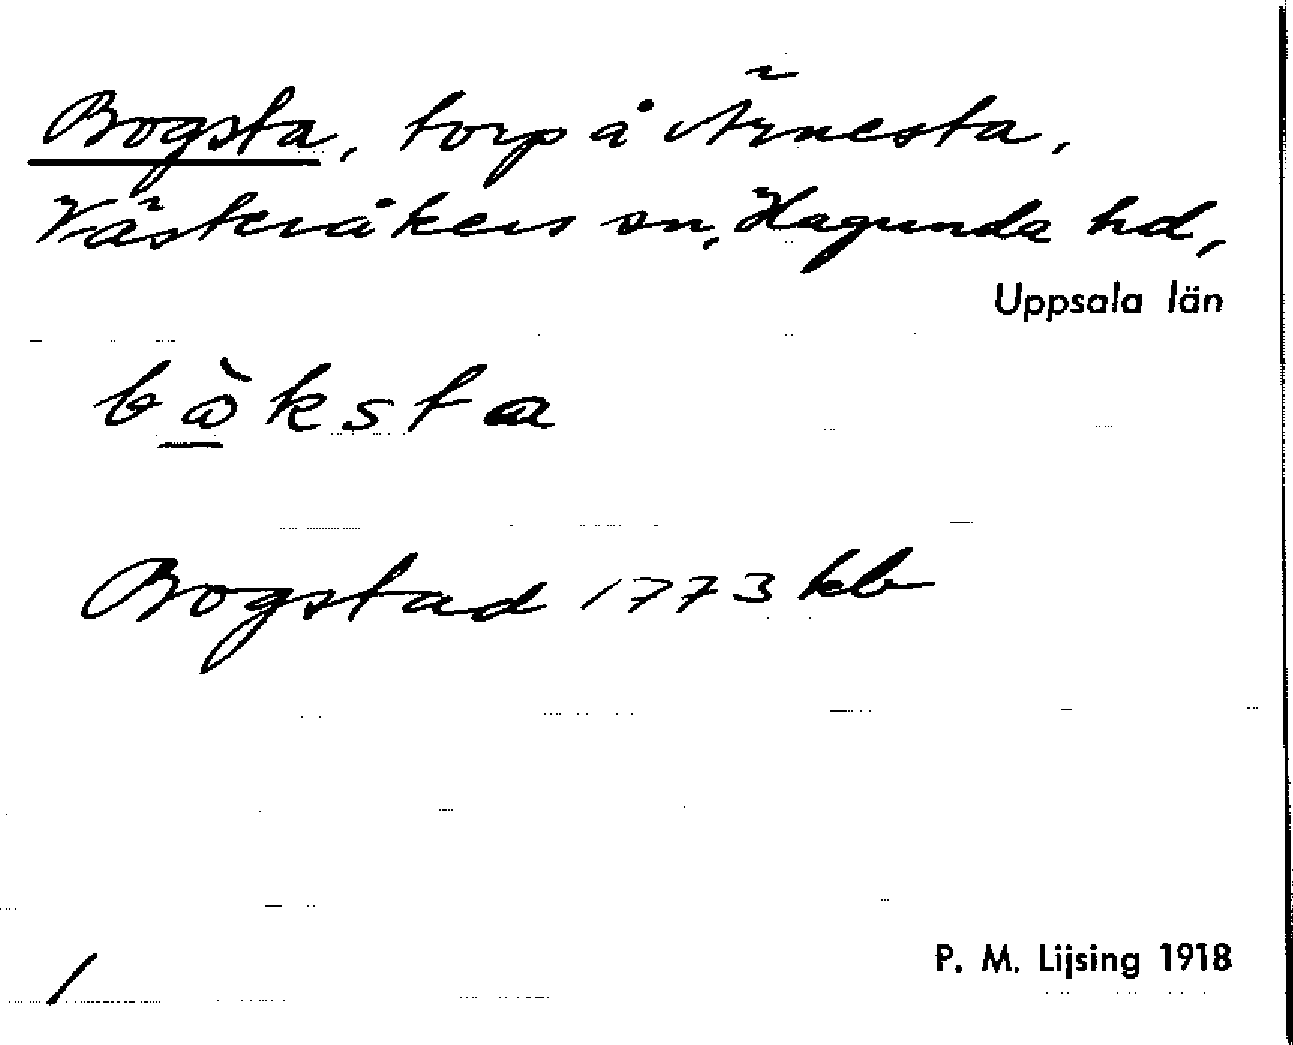 Bogsta, torp å Ärnesta,
Västeråkers sn, Hagunda hd,
Uppsala län
bòksta
Bogstad 1773 kb
P. M. Lijsing 1918